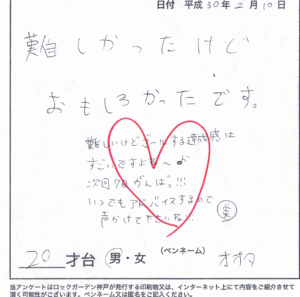 日付 平成 30年 2月 10日
難しかったけど
おもしろかったです。
難しいけどゴールする達成感は
すごいですよね〜♪
次回も がんばっ!!!
いつでもアドバイスするので
声かけて下さいね♪
20 才台 男・女 (ペンネーム) オオタ
当アンケートはロックガーデン神戸が発行する印刷物又は、インターネット上にて内容をご紹介させて
頂く可能性がございます。ペンネーム又は匿名をご記入ください。